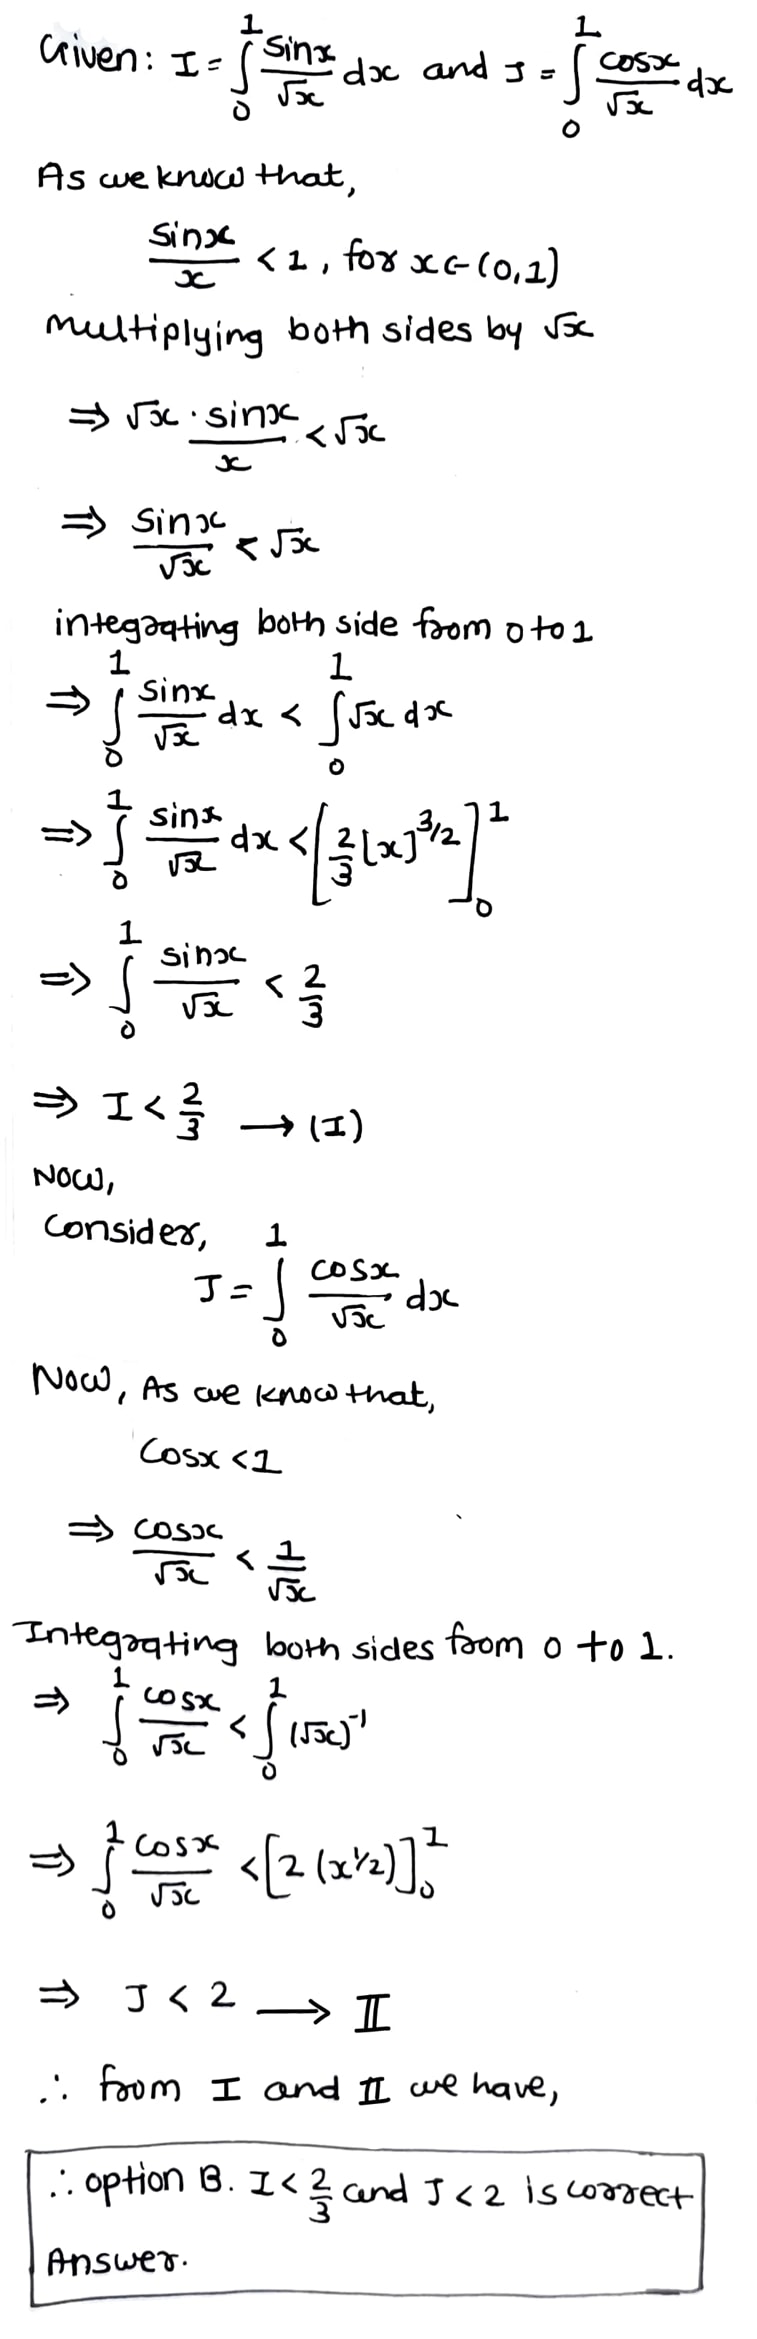 Given: I = ∫₀¹ sinx/√x dx and J = ∫₀¹ cosx/√x dx
As we know that,
sinx/x < 1, for x ∈ (0,1)
multiplying both sides by √x
⇒ √x · sinx/x < √x
⇒ sinx/√x < √x
integrating both side from 0 to 1
⇒ ∫₀¹ sinx/√x dx < ∫₀¹ √x dx
⇒ ∫₀¹ sinx/√x dx < [2/3 [x]^3/2]₀¹
⇒ ∫₀¹ sinx/√x < 2/3
⇒ I < 2/3 → (I)
Now,
Consider,
J = ∫₀¹ cosx/√x dx
Now, As we know that,
Cosx < 1
⇒ cosx/√x < 1/√x
Integrating both sides from 0 to 1.
⇒ ∫₀¹ cosx/√x < ∫₀¹ (√x)⁻¹
⇒ ∫₀¹ cosx/√x < [2 (x^1/2)]₀¹
⇒ J < 2 → II
∴ from I and II we have,
∴ option B. I < 2/3 and J < 2 is correct
Answer.